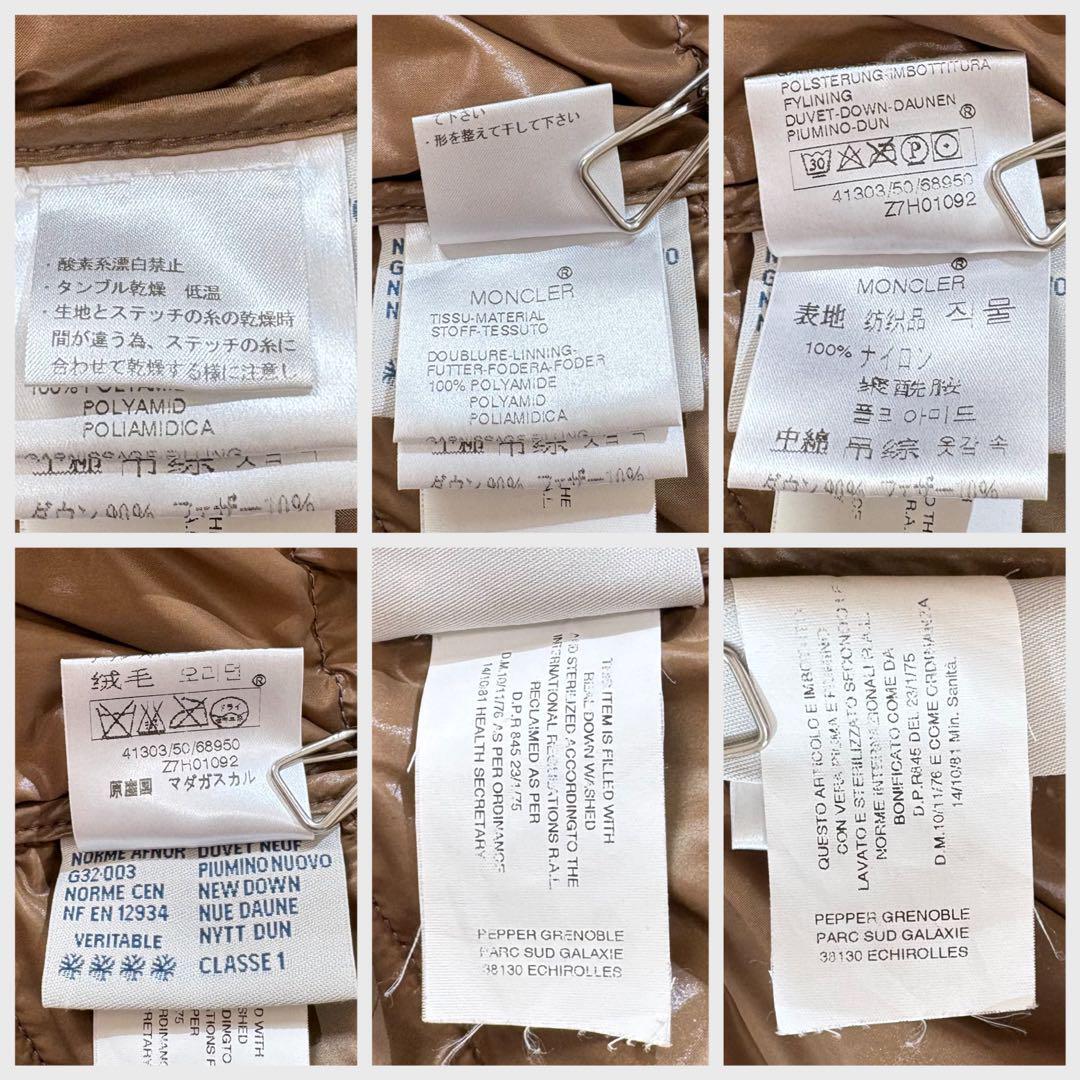 ・酸素系漂白禁止
・タンブル乾燥 低温
・生地とステッチの糸の乾燥時
間が違う為、ステッチの糸に
合わせて乾燥する様に注意し
POLYAMID
POLIAMIDICA
て下さい
・形を整えて干して下さい
®
MONCLER
TISSU-MATERIAL
STOFF-TESSUTO
DOUBLURE-LINNING-
FUTTER-FODERA-FODER
100% POLYAMIDE
POLYAMID
POLIAMIDICA
POLSTERUNG-IMBOTTITURA
FYLINING
DUVET-DOWN-DAUNEN
PIUMINO-DUN
®
30 P
41303/50/68950
Z7H01092
®
MONCLER
表地 纺织品 직물
100% ナイロン
聚酰胺
폴리아미드
中綿 吊综 옷감 속
绒毛 오리털 ®
ドライ
41303/50/68950
Z7H01092
原産国 マダガスカル
NORME AFNOR
G32-003
NORME CEN
NF EN 12934
VERITABLE
DUVET NEUF
PIUMINO NUOVO
NEW DOWN
NUE DAUNE
NYTT DUN
CLASSE 1
THIS ITEM IS FILLED WITH
REAL DOWN WASHED
AND STERILIZED ACCORDING TO THE
INTERNATIONAL REGULATIONS R.A.L.
RECLAIMED AS PER
D.P.R 845 23/1/75
D.M.10/11/76 AS PER ORDINANCE
14/10/81 HEALTH SECRETARY
PEPPER GRENOBLE
PARC SUD GALAXIE
38130 ECHIROLLES
QUESTO ARTICOLO E IMBOTTITO
CON VERA PIUMA E PIUMINO
LAVATO E STERILIZZATO SECONDO LE
NORME INTERNAZIONALI R.A.L.
BONIFICATO COME DA
D.P.R845 DEL 23/1/75
D.M.10/11/76 E COME ORDINANZA
14/10/81 Min. Sanità.
PEPPER GRENOBLE
PARC SUD GALAXIE
38130 ECHIROLLES